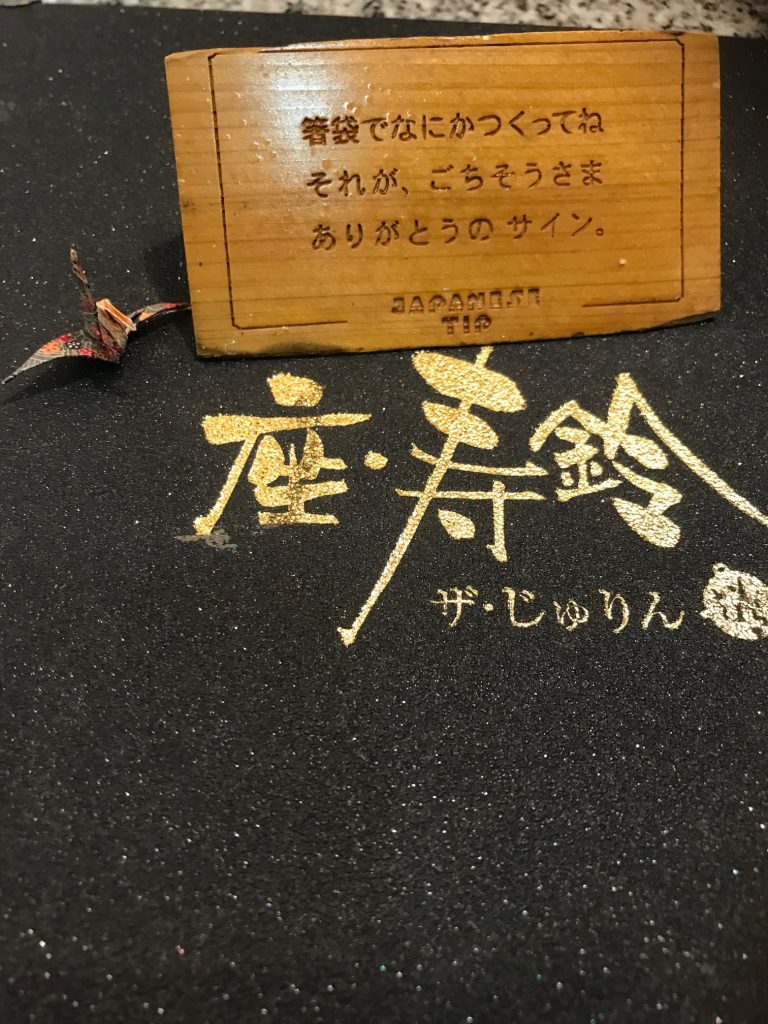 箸袋でなにかつくってね
それが、ごちそうさま
ありがとうのサイン。
JAPANESE
TIP
座・寿鈴
ザ・じゅりん